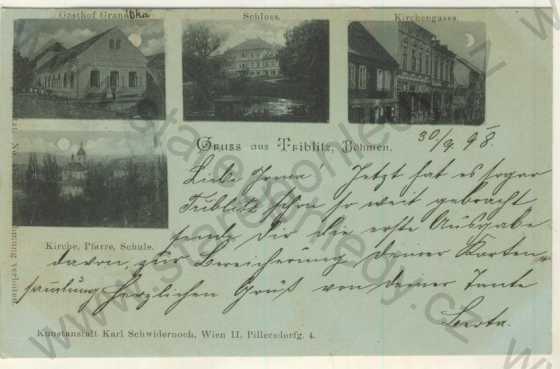 Gasthof Grana
Schloss.
Kirchengasse.
Gruss aus Triblitz, Böhmen.
30/9 98.
Liebe Irma Jetzt hat es sogar
Triblitz schon so weit gebracht
sende Dir die erste Ausgabe
davon, zur Bereicherung Deiner Karten
sammlung herzlichen Gruß von Deiner Tante
Berta.
Kirche, Pfarre, Schule.
Kunstanstalt Karl Schwidernoch, Wien II. Pillersdorfg. 4.